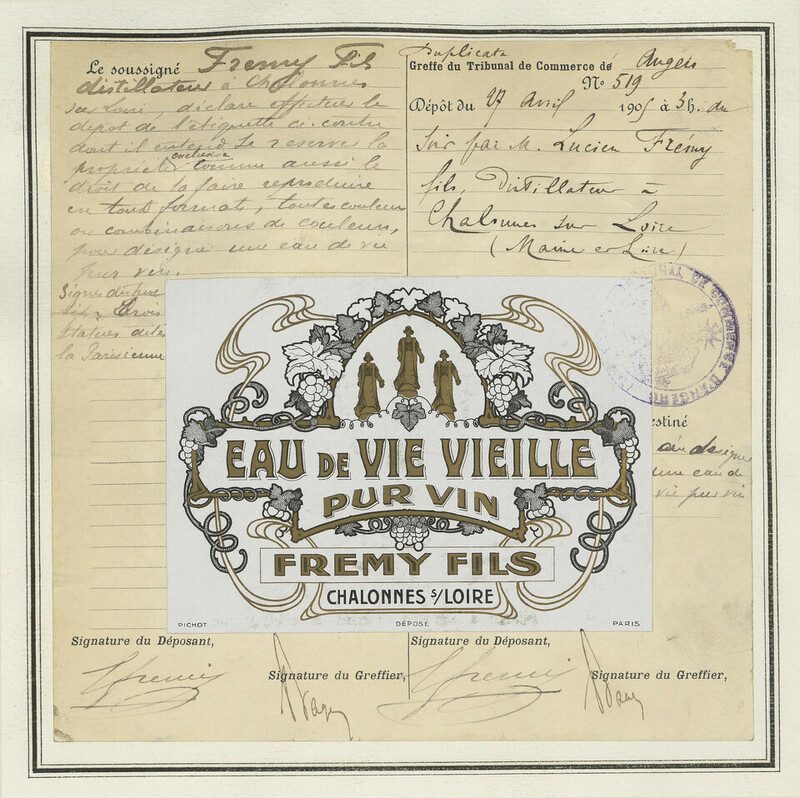 Le soussigné Fremy Fils
distillateur à Chalonnes
sur Loire déclare effectuer le
dépot de l'étiquette ci-contre
dont il entend se réserver la
propriété exclusive comme aussi le
droit de la faire reproduire
en tous formats, toutes couleurs
ou combinaisons de couleurs,
pour désigner une eau de vie
pur vin.
Signes distinc
Trois
statues dites
la Parisienne
Duplicata
Greffe du Tribunal de Commerce de Angers
No 519
Dépôt du 27 Avril 1905 à 3h. du
soir par M. Lucien Frémy
fils, Distillateur à
Chalonnes sur Loire
(Maine et Loire)
TRIBUNAL DE COMMERCE D'ANGERS
estiné
à désigner
une eau de
vie pur vin
EAU DE VIE VIEILLE
PUR VIN
FREMY FILS
CHALONNES S/LOIRE
PICHOT DÉPOSÉ PARIS
Signature du Déposant,
Signature du Greffier,
Signature du Déposant,
Signature du Greffier,